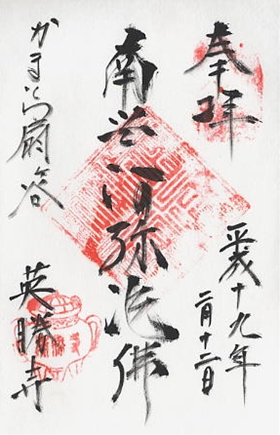 奉拝
平成十九年
二月十二日
南無阿弥陀佛
かまくら扇ヶ谷
英勝寺